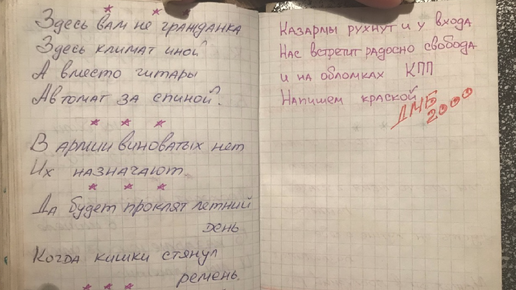 * *
Здесь вам не гражданка
Здесь климат иной
А вместо гитары
Автомат за спиной.
* * *
В армии виноватых нет
Их назначают.
* * *
Да будет проклят летний
день
Когда кишки стянул
ремень.
* * *
Казармы рухнут и у входа
Нас встретит радосно свобода
и на обломках КПП
Напишем краской
ДМБ
2000